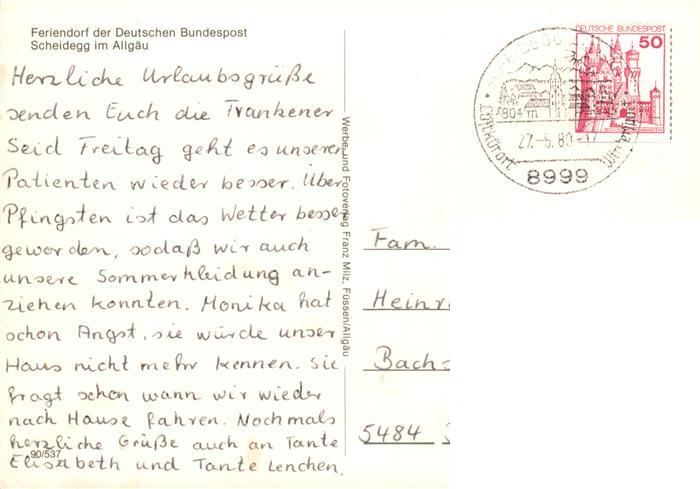 Feriendorf der Deutschen Bundespost
Scheidegg im Allgäu
Herzliche Urlaubsgrüße
senden Euch die Frankener
Seid Freitag geht es unseren
Patienten wieder besser. Über
Pfingsten ist das Wetter besser
geworden, sodaß wir auch
unsere Sommerkleidung an-
ziehen konnten. Monika hat
schon Angst, sie würde unser
Haus nicht mehr kennen. Sie
fragt schon wann wir wieder
nach Hause fahren. Nochmals
herzliche Grüße auch an Tante
Elisabeth und Tante Lenchen.
90/537
Werbe und Fotoverlag Franz Milz, Füssen/Allgäu
DEUTSCHE BUNDESPOST
50
804 m
Luftkurort
27.-5.80-17
8999
Fam.
Heinr
Bach-
5484